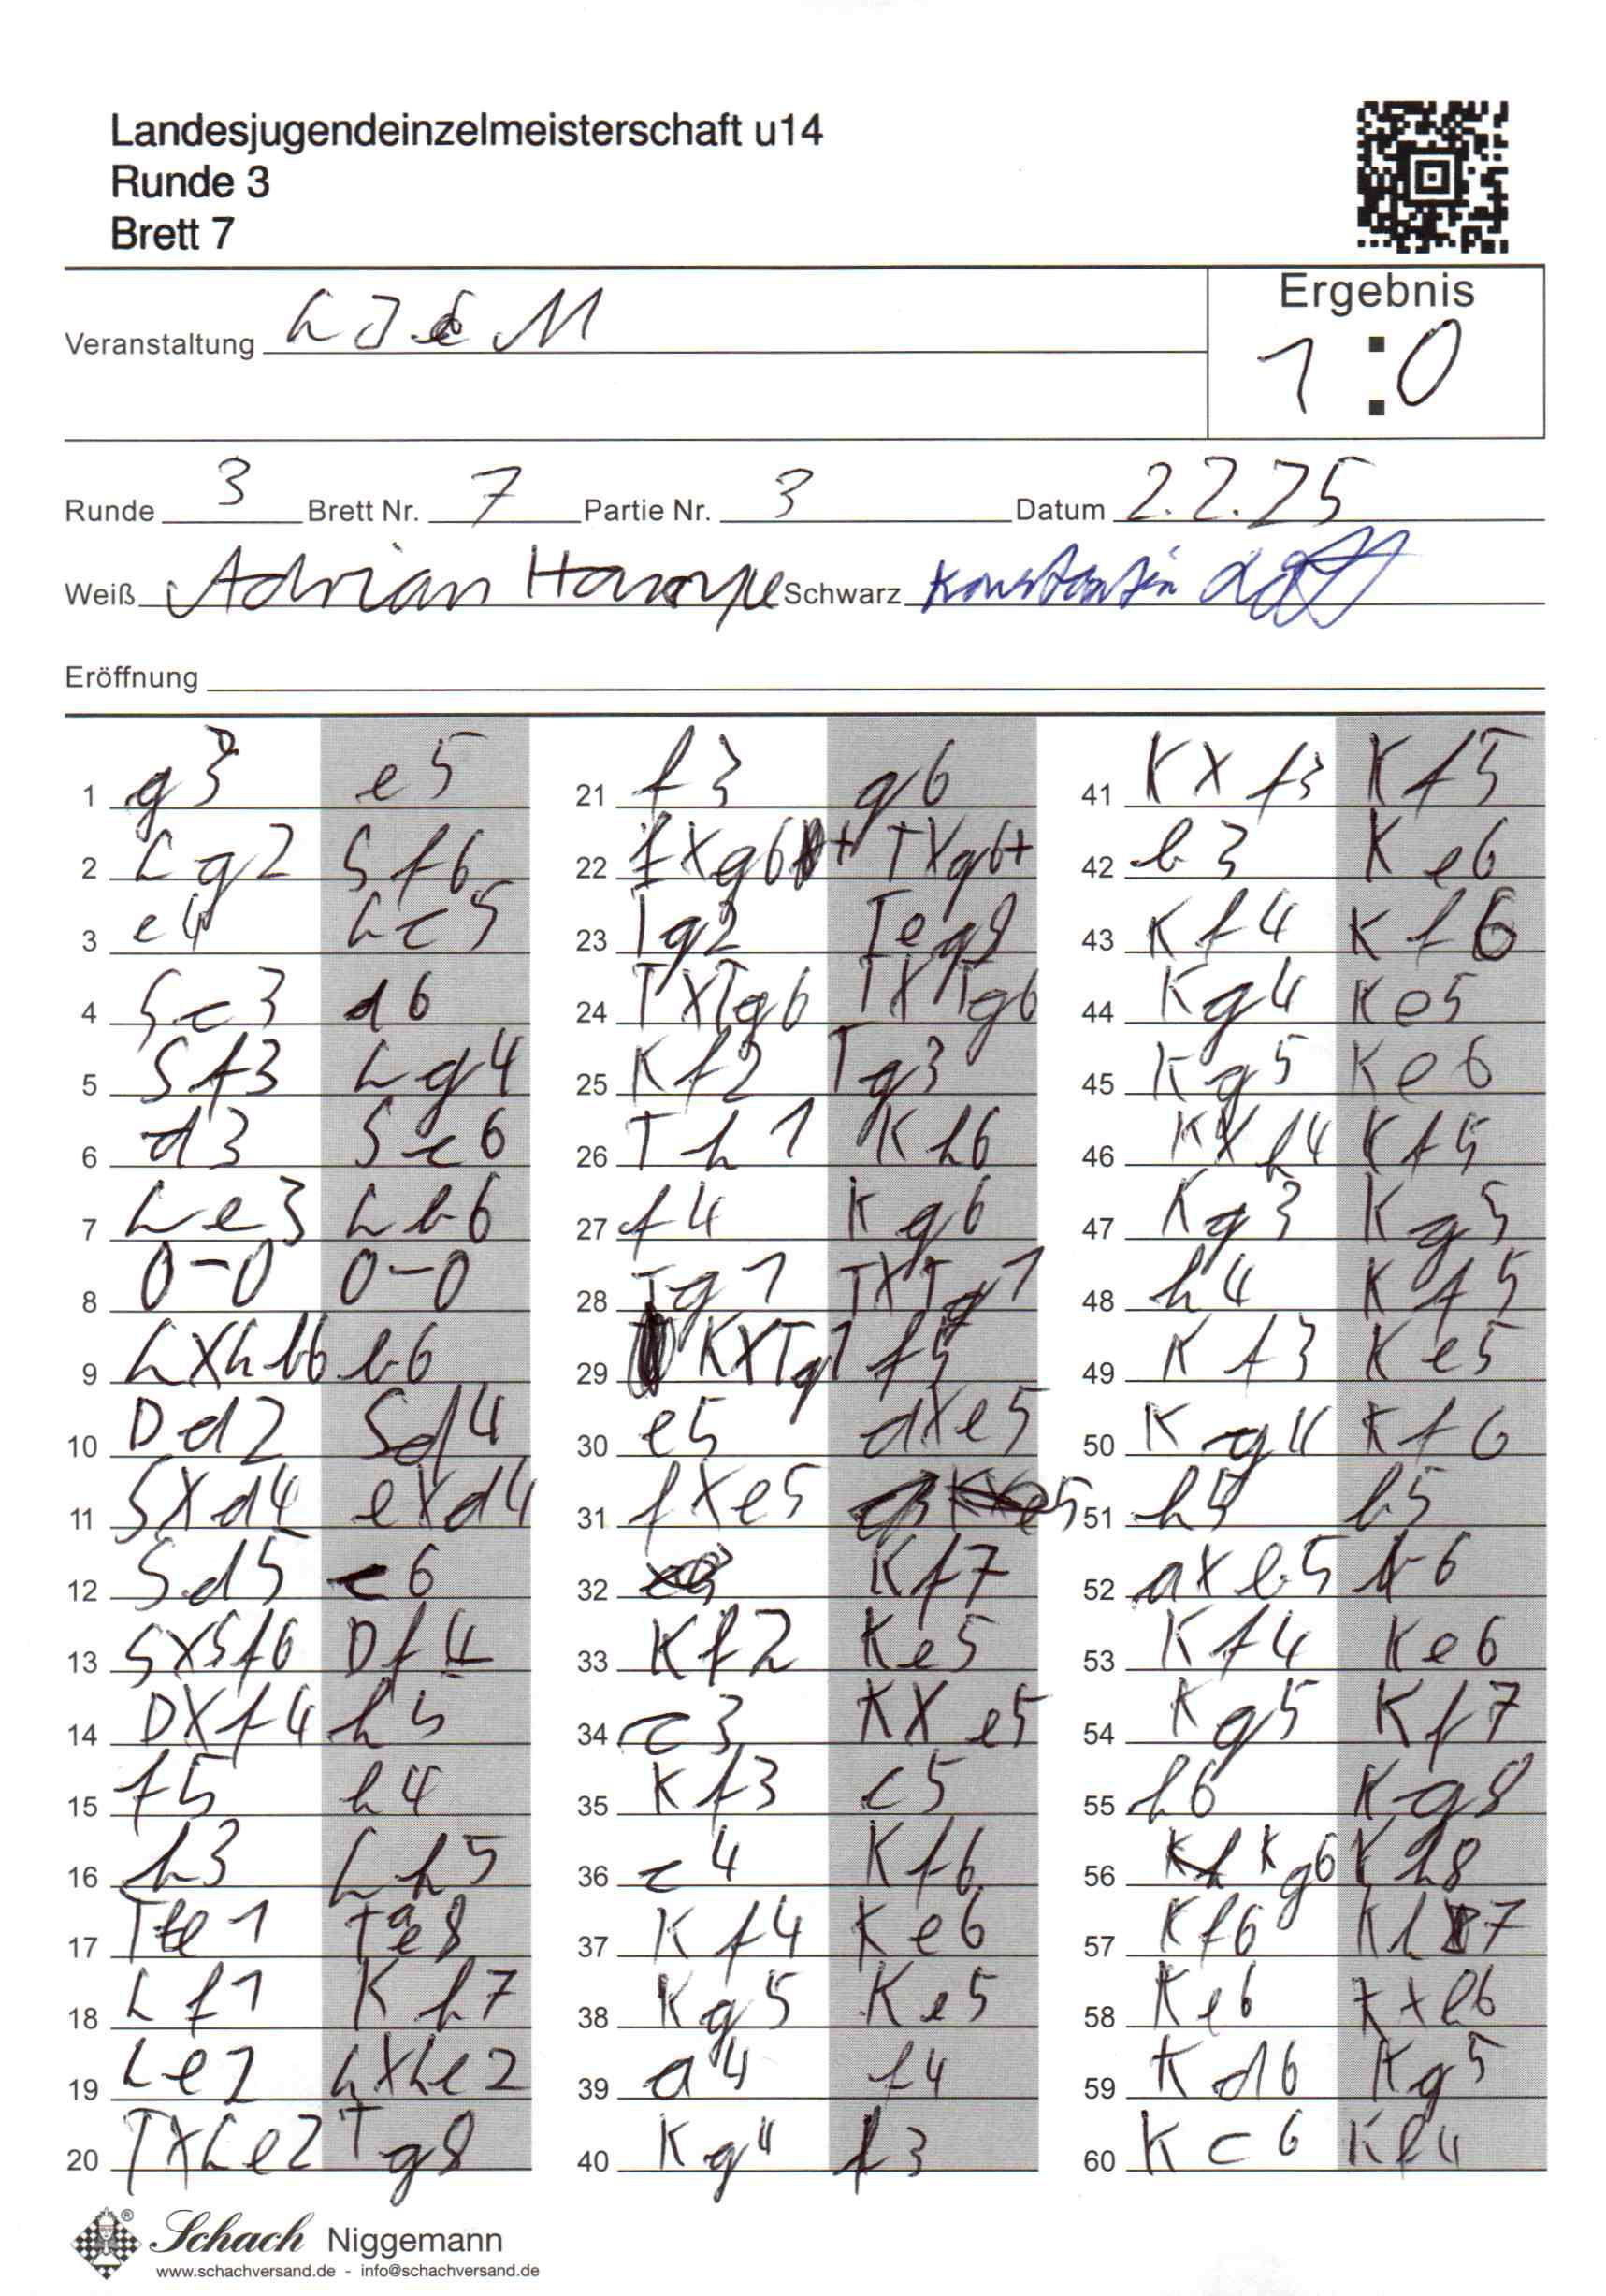 Landesjugendeinzelmeisterschaft u14
Runde 3
Brett 7
Veranstaltung LJEM
Ergebnis
1:0
Runde 3 Brett Nr. 7 Partie Nr. 3 Datum 2.2.25
Weiß Adrian Schwarz Konstantin
Eröffnung
1 g3 e5
2 Lg2 Sf6
3 e4 Lc5
4 Sc3 d6
5 Sf3 Lg4
6 d3 Sc6
7 Le3 Lb6
8 0-0 0-0
9 LXLb6 b6
10 Dd2 Sd4
11 SXd4 eXd4
12 Sd5 c6
13 SXSf6 Df4
14 DXf4 h5
15 f5 h4
16 h3 Lh5
17 Te1 Tae8
18 Lf1 Kh7
19 Le2 LXLe2
20 TXLe2 Tg8
21 f3 g6
22 fXg6+ TXg6+
23 Tg2 Teg8
24 TXTg6 TXTg6
25 Kf2 Tg3
26 Th1 Kh6
27 f4 Kg6
28 Tg1 TXTg1
29 KXTg1 f5
30 e5 dXe5
31 fXe5
32 Kf7
33 Kf2 Ke5
34 c3 KXe5
35 Kf3 c5
36 c4 Kf6
37 Kf4 Ke6
38 Kg5 Ke5
39 a4 f4
40 Kg4 f3
41 KXf3 Kf5
42 b3 Ke6
43 Kf4 Kf6
44 Kg4 Ke5
45 Kg5 Ke6
46 KXh4 Kf5
47 Kg3 Kg5
48 h4 Kf5
49 Kf3 Ke5
50 Kg4 Kf6
51 h5 b5
52 aXb5 b6
53 Kf4 Ke6
54 Kg5 Kf7
55 h6 Kg8
56 Kg6 Kh8
57 Kf6 Kh7
58 Ke6 KXh6
59 Kd6 Kg5
60 Kc6 Kf4
Schach Niggemann
www.schachversand.de - info@schachversand.de